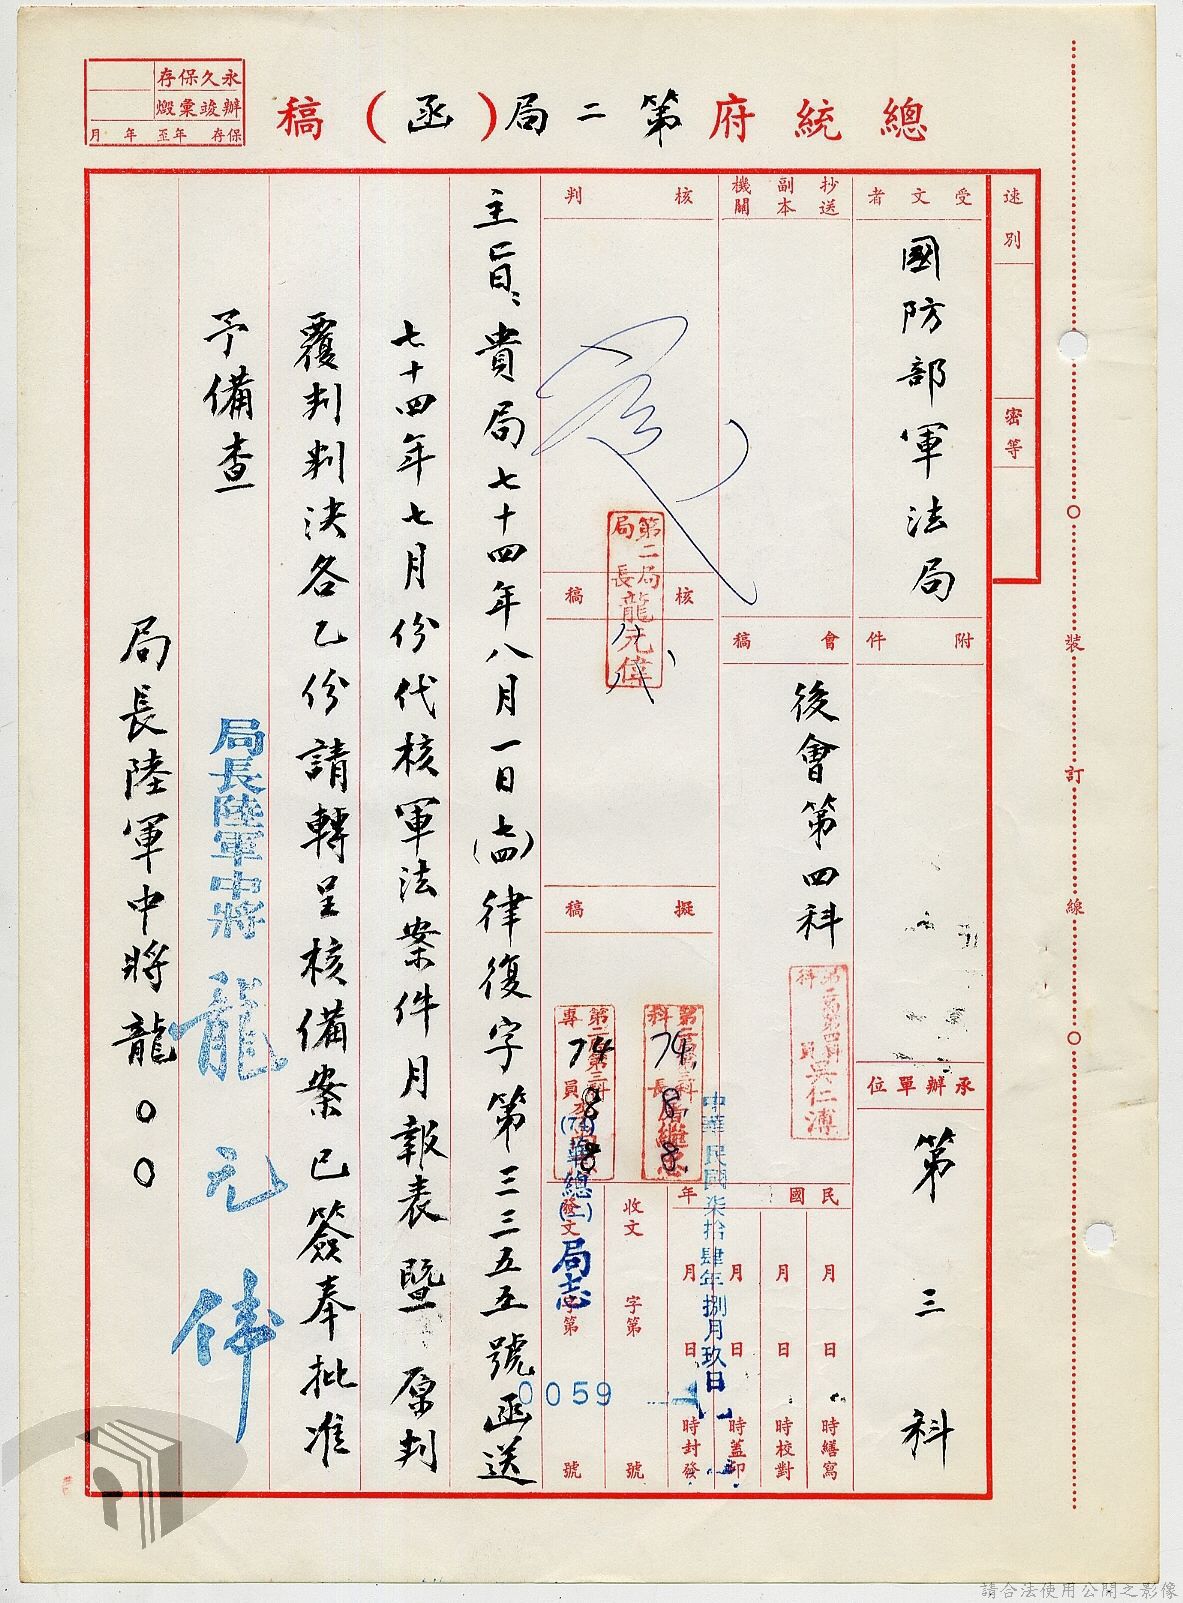 總統府第二局(函)稿
永久保存
辦竣彙燬
保存 年至 年 月
速別
密等
受文者
國防部軍法局
附件
承辦單位
第三科
抄送
副本
機關
會稿
後會第四科
吳仁溥
核判
核稿
第二局
局長龍元偉
擬稿
第二局第三科
科長
74.
8
8.
第二局第三科
專員
74
8
8
民國 年
月 日 時繕寫
月 日 時校對
月 日 時蓋印
月 日 時封發
中華民國柒拾肆年捌月玖日
收文 字第 號
發文 字第 號
(74)華總(二)局志
0059
主旨：貴局七十四年八月一日(七四)律復字第三三五五號函送
七十四年七月份代核軍法案件月報表暨原判
覆判判決各乙份請轉呈核備案已簽奉批准
予備查
局長陸軍中將 龍元偉
局長陸軍中將龍○○
裝訂線
請合法使用公開之影像